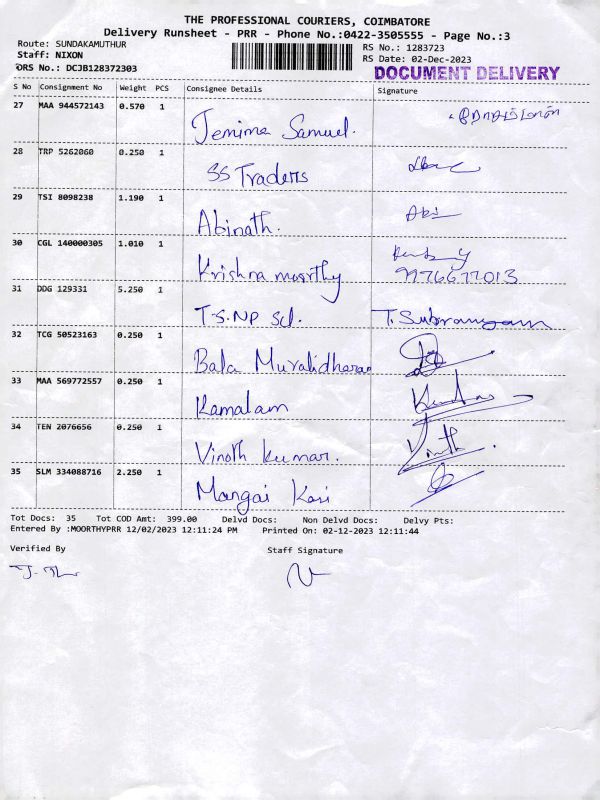 THE PROFESSIONAL COURIERS, COIMBATORE
Delivery Runsheet - PRR - Phone No.:0422-3505555 - Page No.:3
Route: SUNDAKAMUTHUR RS No.: 1283723
Staff: NIXON RS Date: 02-Dec-2023
DRS No.: DCJB128372303 DOCUMENT DELIVERY
S No Consignment No Weight PCS Consignee Details Signature
27 MAA 944572143 0.570 1 Jemima Samuel.
28 TRP 5262060 0.250 1 SS Traders
29 TSI 8098238 1.190 1 Abinath. Abi
30 CGL 140000305 1.010 1 Krishna moorthy
9976677013
31 DDG 129331 5.250 1 T.S.NP Scl. T. Subramaniam
32 TCG 50523163 0.250 1 Bala Muralidharan
33 MAA 569772557 0.250 1 Kamalam
34 TEN 2076656 0.250 1 Vinoth kumar. Vinoth
35 SLM 334088716 2.250 1 Mangai Kani
Tot Docs: 35 Tot COD Amt: 399.00 Delvd Docs: Non Delvd Docs: Delvy Pts:
Entered By :MOORTHYPRR 12/02/2023 12:11:24 PM Printed On: 02-12-2023 12:11:44
Verified By Staff Signature